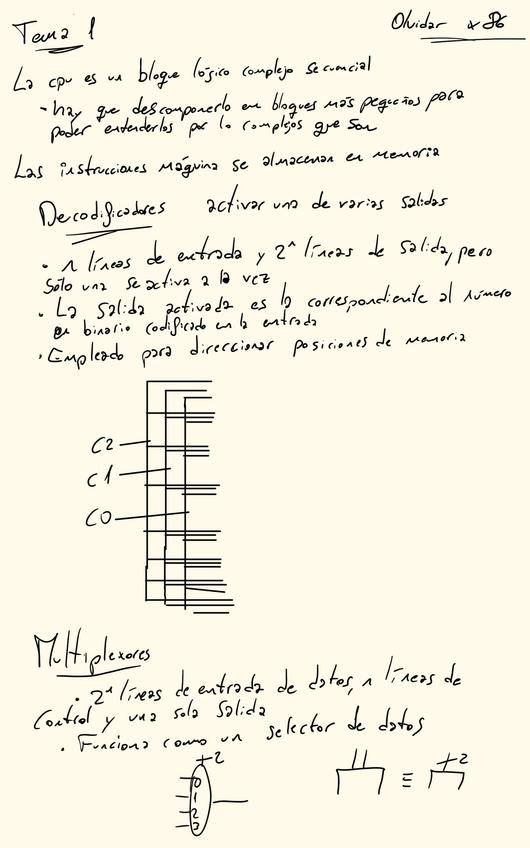 Tema 1
Olvidar x86
La cpu es un bloque lógico complejo secuencial
- hay que descomponerlo en bloques más pequeños para
poder entenderlos por lo complejos que son
Las instrucciones máquina se almacenan en memoria
Decodificadores activar una de varias salidas
· n líneas de entrada y 2^n líneas de salida, pero
solo una se activa a la vez
· La salida activada es la correspondiente al número
en binario codificado en la entrada
· Empleado para direccionar posiciones de memoria
C2
C1
C0
Multiplexores
· 2^n líneas de entrada de datos, n líneas de
Control y una sola salida
· Funciona como un selector de datos
2
0
1
2
3
≡
2